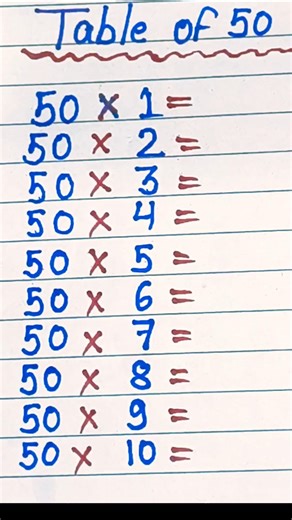 Table of 50
50 × 1 =
50 × 2 =
50 × 3 =
50 × 4 =
50 × 5 =
50 × 6 =
50 × 7 =
50 × 8 =
50 × 9 =
50 × 10 =